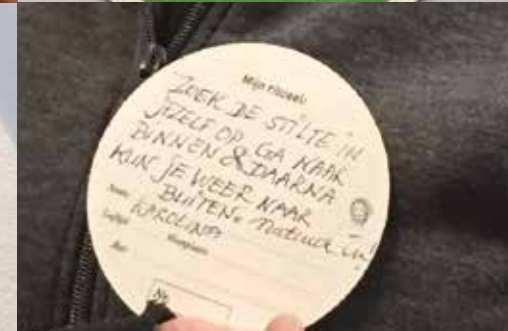 Mijn ritueel:
ZOEK DE STILTE IN
JEZELF OP. GA NAAR
BINNEN & DAARNA
KUN JE WEER NAAR
BUITEN. natuur in!
Naam:
KAROLINA
Leeftijd:
Woonplaats:
No.